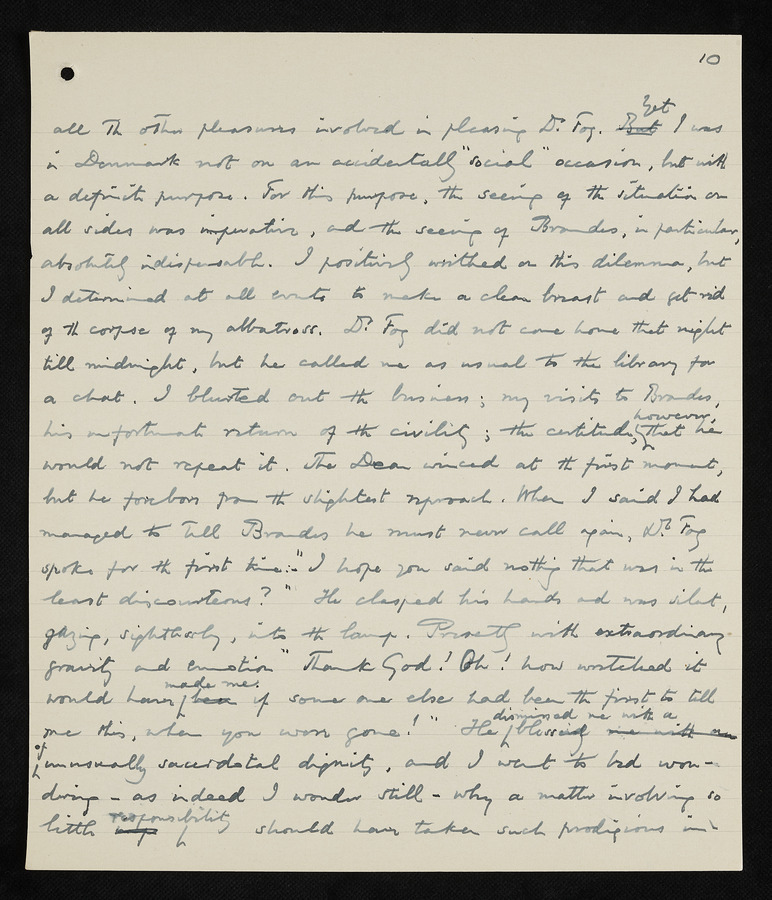 10
all the other pleasures involved in pleasing Dr. Fog. But Yet I was
in Denmark not on an accidentally "social" occasion, but with
a definite purpose. For this purpose, the seeing of the situation on
all sides was imperative, and the seeing of Brandes, in particular,
absolutely indispensable. I positively writhed on this dilemma, but
I determined at all events to make a clean breast and get rid
of the corpse of my albatross. Dr. Fog did not come home that night
till midnight, but he called me as usual to the library for
a chat. I blurted out the business; my visits to Brandes,
his unfortunate return of the civility; the certitude, however, that he
would not repeat it. The Dean winced at the first moment,
but he forebore from the slightest reproach. When I said I had
managed to tell Brandes he must never call again, Dr. Fog
spoke for the first time:- "I hope you said nothing that was in the
least discourteous?" He clasped his hands and was silent,
gazing, sightlessly, into the lamp. Presently with extraordinary
gravity and emotion "Thank God! Oh! how wretched it
would have been made me. if some one else had been the first to tell
me this, when you were gone!" He dismissed me with a blessing me with an
of unusually sacerdotal dignity, and I went to bed won-
dering - as indeed I wonder still - why a matter involving so
little responsibility should have taken such prodigious im-